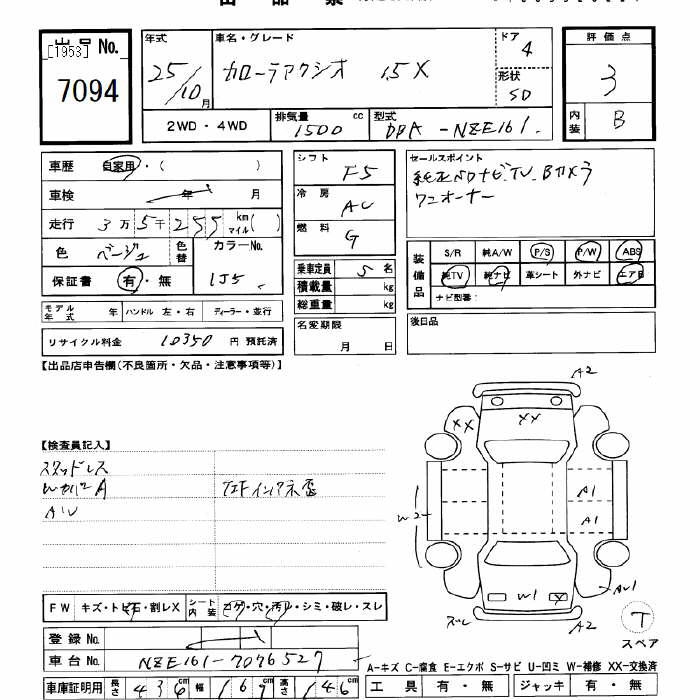 出品No.
[1953]
7094
年式
25/10月
車名・グレード
カローラアクシオ 1.5X
ドア
4
形状
SD
評価点
3
内装
B
2WD・4WD
排気量
1500 cc
型式
DBA-NZE161.
車歴 自家用・( )
車検 年 月
走行 3万5千255 km マイル( )
色 ベージュ 色替
カラーNo.
1J5
保証書 有・無
モデル年式 年 ハンドル 左・右 ディーラー・並行
リサイクル料金 10350 円 預託済
シフト
F5
冷房
AC
燃料
G
乗車定員 5 名
積載量 kg
総重量 kg
名変期限
月 日
セールスポイント
純正SDナビ、TV、Bカメラ
ワンオーナー
装備品
S/R 純A/W P/S P/W ABS
純TV 純ナビ 革シート 外ナビ エアB
ナビ型番:
後日品
【出品店申告欄(不良箇所・欠品・注意事項等)】
【検査員記入】
スタッドレス
A
AU
FW キズ・トビ石・割レX シート内装 コゲ・穴・汚レ・シミ・破レ・スレ
登録No.
車台No. NZE161-7076527
車庫証明用 長さ 436cm 幅 169cm 高さ 146
A2
XX
XX
A1
A1
W2
W1
Y
AU1
ズレ
A2
T
スペア
A-キズ C-腐食 E-エクボ S-サビ U-凹ミ W-補修 XX-交換済
工具 有・無 ジャッキ 有・無